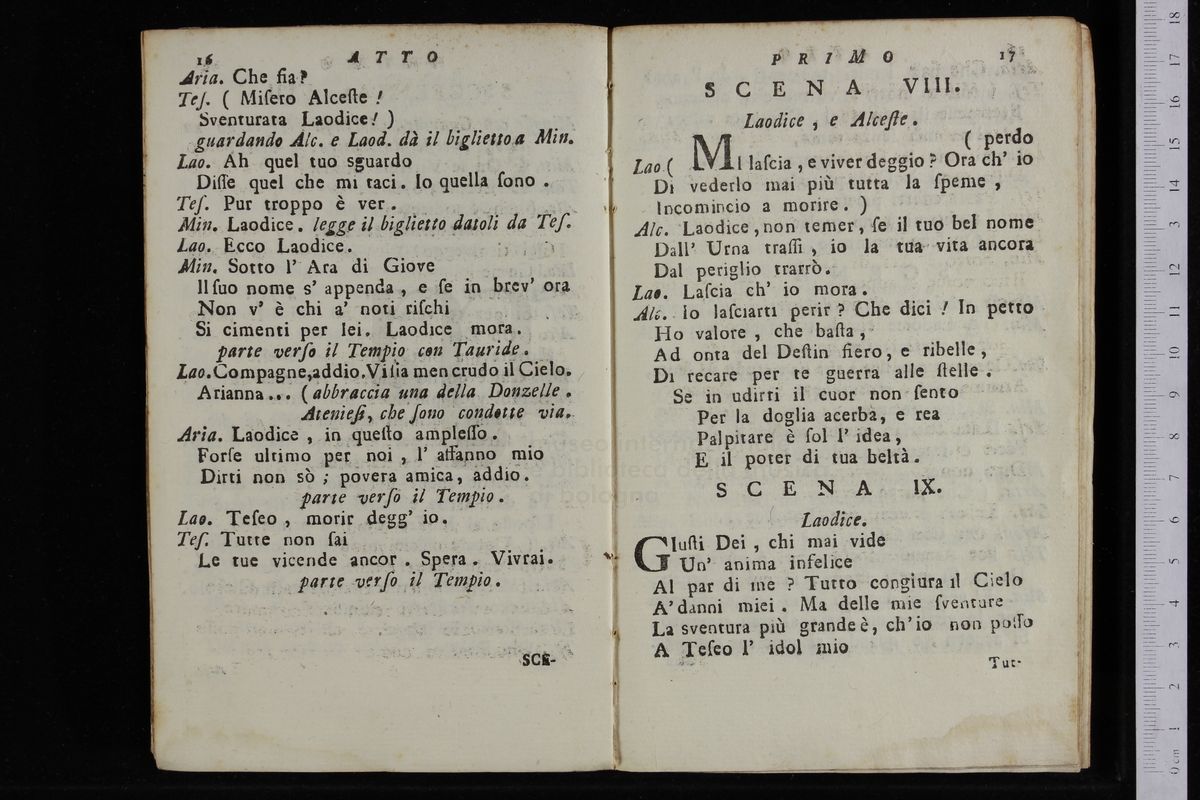 16 ATTO
Aria. Che fia?
Teſ. ( Miſero Alceſte !
Sventurata Laodice! )
guardando Alc. e Laod. dà il biglietto a Min.
Lao. Ah quel tuo sguardo
Diſſe quel che mi taci. Io quella ſono .
Teſ. Pur troppo è ver .
Min. Laodice. legge il biglietto datoli da Teſ.
Lao. Ecco Laodice.
Min. Sotto l' Ara di Giove
Il ſuo nome s' appenda , e ſe in brev' ora
Non v' è chi a' noti riſchi
Si cimenti per lei. Laodice mora.
parte verſo il Tempio con Tauride .
Lao. Compagne, addio. Vi ſia men crudo il Cielo.
Arianna ... ( abbraccia una della Donzelle .
Atenieſi, che ſono condotte via.
Aria. Laodice , in queſto ampleſſo .
Forſe ultimo per noi , l' affanno mio
Dirti non sò ; povera amica, addio.
parte verſo il Tempio .
Lao. Teſeo , morir degg' io.
Teſ. Tutte non ſai
Le tue vicende ancor . Spera . Vivrai.
parte verſo il Tempio .
SCE-
PRIMO 17
SCENA VIII.
Laodice , e Alceſte .
( perdo
Lao ( MI laſcia , e viver deggio ? Ora ch' io
Di vederlo mai più tutta la ſpeme ,
Incomincio a morire . )
Alc. Laodice , non temer , ſe il tuo bel nome
Dall' Urna traſſi , io la tua vita ancora
Dal periglio trarrò.
Lao. Laſcia ch' io mora .
Alc. Io laſciarti perir ? Che dici ! In petto
Ho valore , che baſta ,
Ad onta del Deſtin fiero, e ribelle ,
Di recare per te guerra alle ſtelle .
Se in udirti il cuor non ſento
Per la doglia acerba, e rea
Palpitare è ſol l' idea ,
E il poter di tua beltà .
SCENA IX.
Laodice.
GIuſti Dei , chi mai vide
Un' anima infelice
Al par di me ? Tutto congiura il Cielo
A' danni miei . Ma delle mie ſventure
La sventura più grande è, ch' io non poſſo
A Teſeo l' idol mio
Tut-